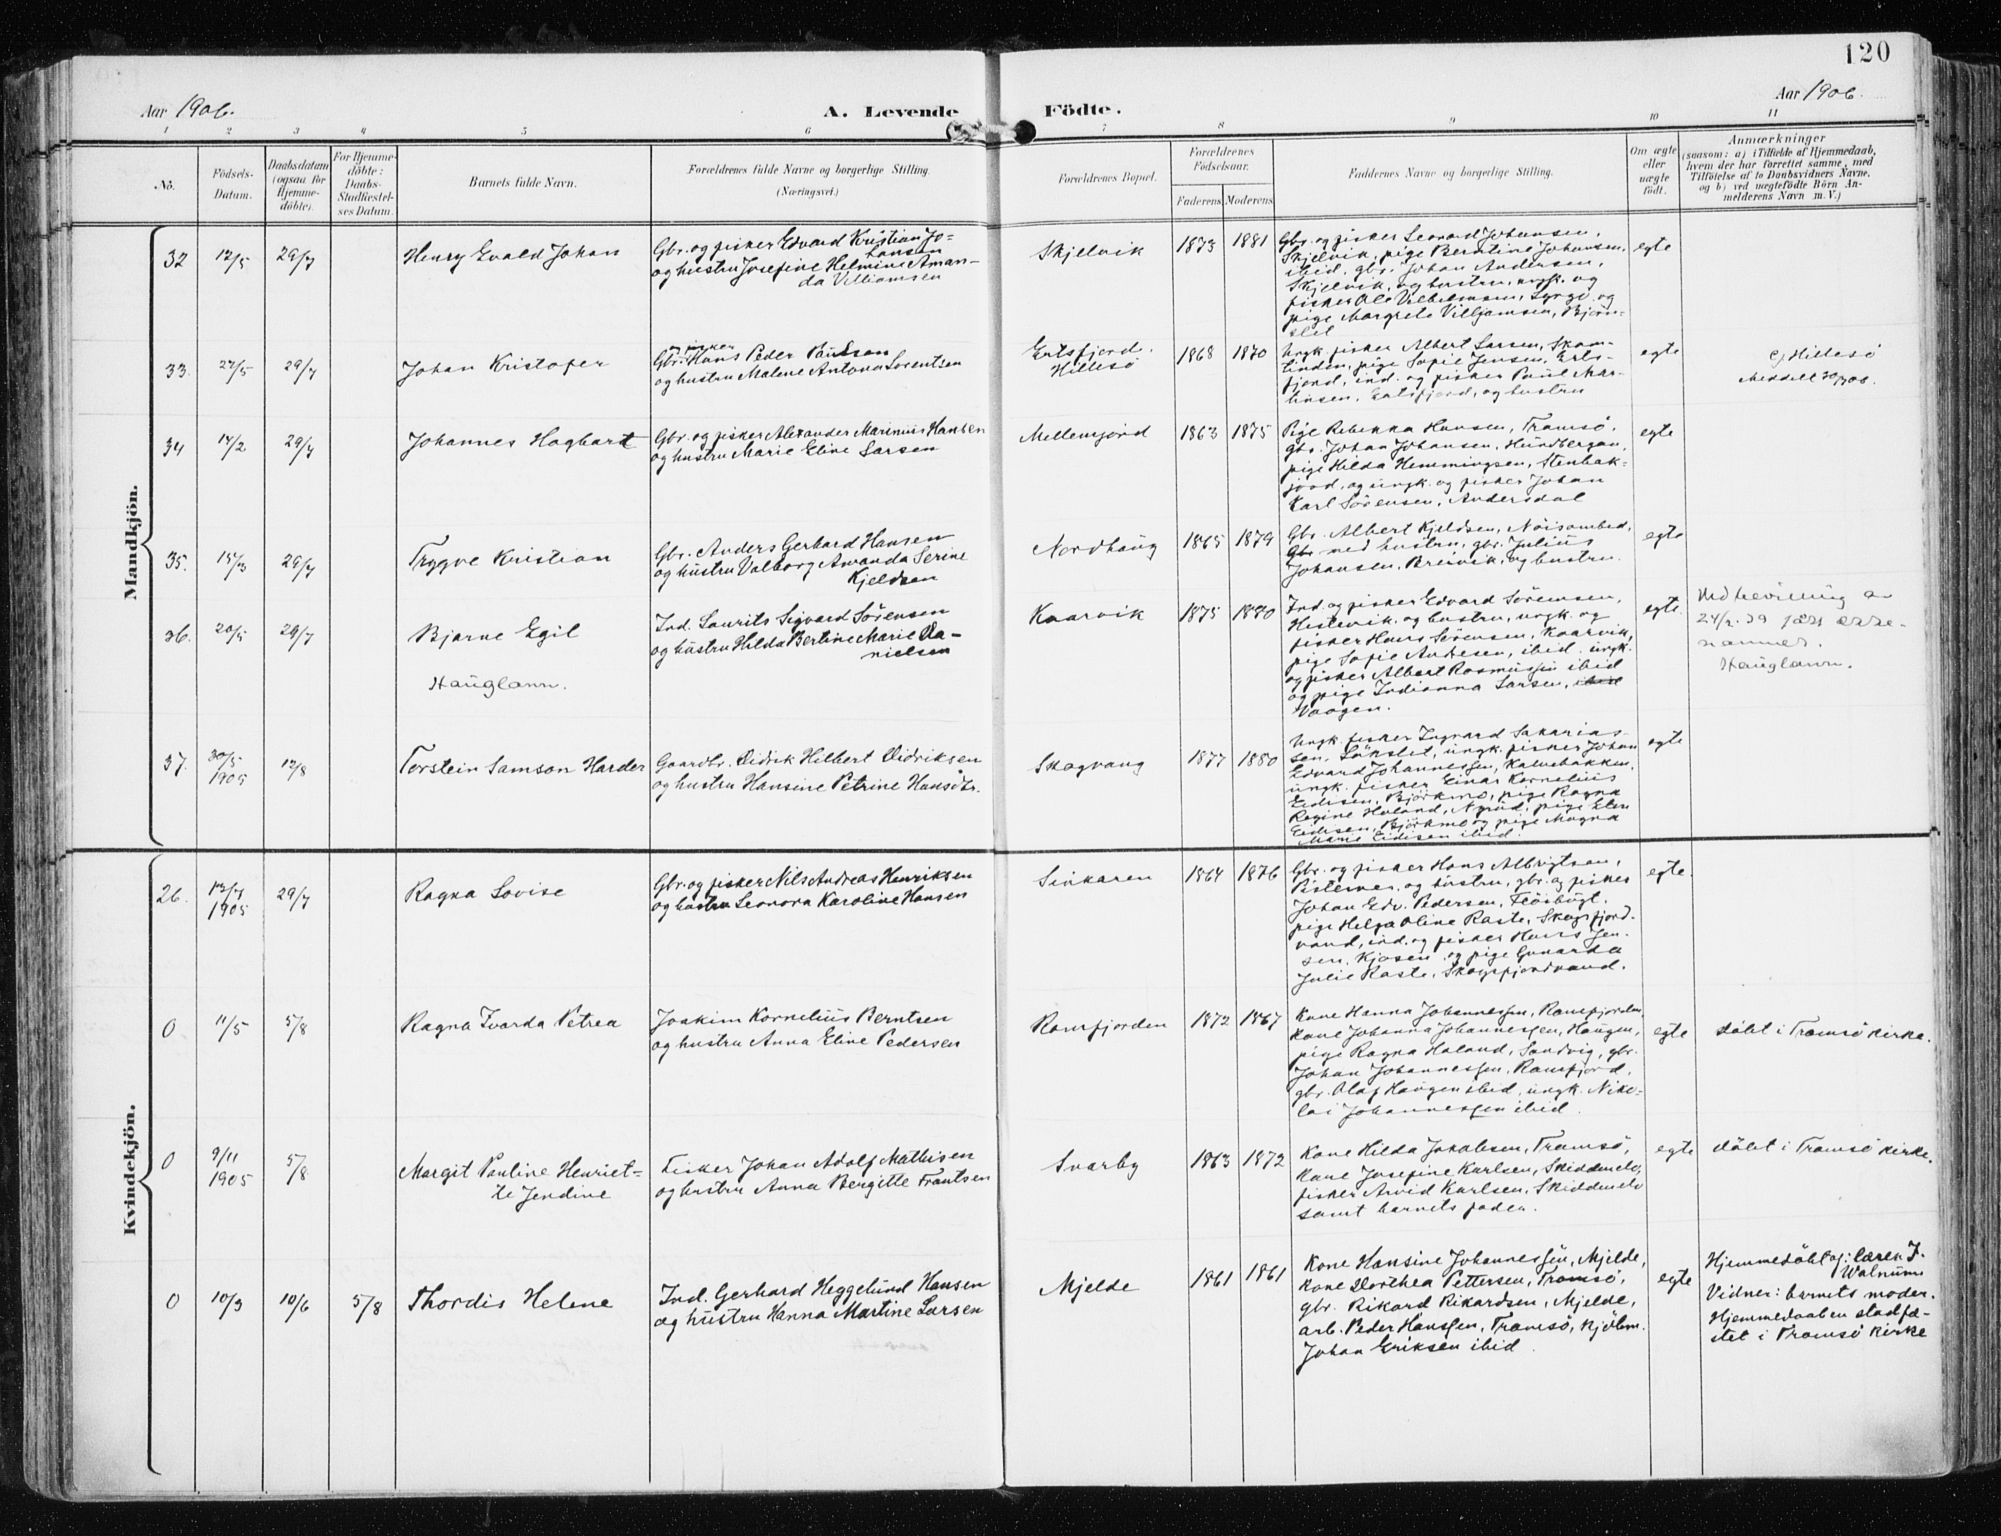 120
Aar 1906.
A. Levende
Födte.
Aar 1906.
1 2 3 4 5 6 7 8 9 10 11
No.
Födsels-
Datum.
Daabsdatum
(ogsaa for
Hjemme-
döbte).
For Hjemme-
döbte:
Daabs-
Stadfæstel-
ses Datum.
Barnets fulde Navn.
Forældrenes fulde Navne og borgerlige Stilling.
(Næringsvei.)
Forældrenes Bopæl.
Forældrenes
Födselsaar.
Faderens. Moderens.
Faddernes Navne og borgerlige Stilling.
Om ægte
eller
uægte
födt.
Anmærkninger
(saasom: a) i Tilfælde af Hjemmedaab,
hvem der har forrettet samme, med
Tilföielse af to Daabsvidners Navne,
og b) ved uægtefödte Börn An-
melderens Navn m. V.)
Mandkjön.
32 12/5 29/7 Henry Evald Johan
Gbr. og fisker Edvard Kristian Jo-
hansen
og hustru Josefine Helmine Aman-
da Villiamsen
Skjelvik 1873 1881
Gbr. og fisker Leonard Johansen,
Skjelvik, pige Berntine Johansen,
ibid, gbr. Johan Andersen,
Skjelvik, og hustru, ungk. og
fisker Ole Vilhelmsen, og
pige Margrete Villjamsen, Bjørn-
slet
egte
33. 27/5 29/7 Johan Kristofer
og fisker
Gbr. Hans Peder Paulsen
og hustru Malene Antona Lorentsen
Ertsfjord.
Hillesö
1868 1870
Ungk. fisker Albert Larsen, Skam-
tinden, pige Sofie Jensen, Erts-
fjord, ind. og fisker Paul Mar-
tinsen, Ertsfjord, og hustru
egte
Hillesö
Meddelt
34 14/2 29/7 Johannes Hagbart
Gbr. og fisker Alexander Marinius Hansen
og hustru Marie Eline Larsen
Mellemjord 1863 1875
Pige Rebekka Hansen, Tromsö,
gbr. Johan Johansen, Hundbergan,
pige Hilda Hemmingsen, Stenbak-
jord, og ungk. og fisker Johan
Karl Sörensen, Andersdal
egte
35. 15/3 29/7 Trygve Kristian
Gbr. Anders Gerhard Hansen
og hustru Valborg Amanda Serine
Kjeldsen
Nordhaug 1865 1879
Gbr. Albert Kjeldsen, Nöisombed,
Gbr med hustru, gbr. Julius
Johansen, Breivik, og hustru.
egte
36. 20/5 29/7 Bjarne Egil
Hauglann.
Ind. Laurits Sigvard Sörensen
og hustru Hilda Bertine Marie Da-
nielsen
Kaarvik 1875 1880
Ind. og fisker Edvard Sörensen,
Histevik, og hustru, ungk. og
fisker Hans Sörensen, Kaarvik,
pige Sofie Andresen, ibid. ungk.
og fisker Albert Rasmussen ibid
og pige Indianna Larsen, ibid
Vaagen.
egte.
Ved bevilling av
24/2.39
navnet.
Hauglann.
37. 30/5
1905 12/8 Torstein Samson Harder
Gaardbr. Didrik Hilbert Didriksen
og hustru Hansine Petrine Hansdtr.
Skogvang 1877 1880
Ungk. fisker Ingvard Sakarias-
sen, Lökslet, ungk. fisker Johan
Edvard Johannessen, Kalvebakken,
ungk. fisker Einar Kornelius
Eidisen, Björkmo, pige Ragna
Regine Holand, Nyrud, pige Elen
Eidisen, Björkmo og pige Magna
Marie Eidisen ibid
egte
Kvindekjön.
26. 13/7
1905 29/7 Ragna Lovise
Gbr. og fisker Nils Andreas Henriksen
og hustru Leonora Karoline Hansen
Sinkaren 1864 1876
Gbr. og fisker Hans Albrigtsen,
Bisternes, og hustru, gbr. og fisker
Johan Edv. Pedersen, Flöibugt.
pige Helga Oline Raste, Skogsfjord-
vand, ind. og fisker Hans Jen-
sen, Kjosen, og pige Gunarda
Julie Raste, Skogsfjordvand.
egte.
0 11/5 5/8 Ragna Ivarda Petrea
Joakim Kornelius Berntsen
og hustru Anna Eline Pedersen
Ramfjorden 1872 1867
Kone Hanna Johannessen, Ramfjorden,
Kone Johanna Johannessen, Haugen,
pige Ragna Holand, Sandvig, gbr.
Johan Johannessen, Ramfjord,
gbr. Olaf Haugen ibid, ungk. Niko-
lai Johannessen ibid.
egte döbt i Tromsö kirke.
0 9/11
1905 5/8 Margit Pauline Henriet-
te Jendine
Fisker Johan Adolf Mathisen
og hustru Anna Bergitte Frantsen
Svarby 1863 1872
Kone Hilda Jakobsen, Tromsö,
Kone Josefine Karlsen, Skiddenelv,
fisker Arvid Karlsen, Skiddenelv
samt barnets fader.
egte döbt i Tromsö kirke.
0 10/3 10/6 5/8 Thordis Helene
Ind. Gerhard Heggelund Hansen
og hustru Hanna Martine Larsen
Mjelde 1861 1861
Kone Hansine Johannessen, Mjelde,
Kone Dorthea Pettersen, Tromsö,
gbr. Rikard Rikardsen, Mjelde,
arb. Peder Hanssen, Tromsö, kjöbm.
Johan Eriksen ibid.
egte
Hjemmedöbt af: lærer J.
Walnum
Vidner: barnets moder.
Hjemmedaaben stadfæ-
stet i Tromsö kirke